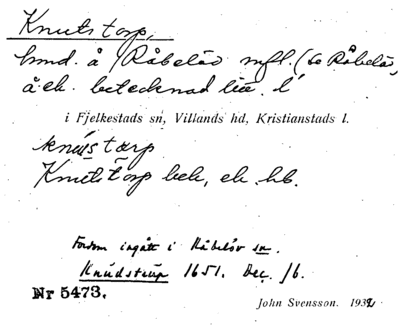 Knutstorp,
hmd. å Råbelöv mfl. (se Råbelöv,
å ek. betecknad litt. l
i Fjelkestads sn, Villands hd, Kristianstads l.
knústarp
Knutstorp bek, ek. hb.
Fordom ingått i Råbelöv sn.
Knudstrup 1651. Dec. Jb.
Nr 5473.
John Svensson. 1932